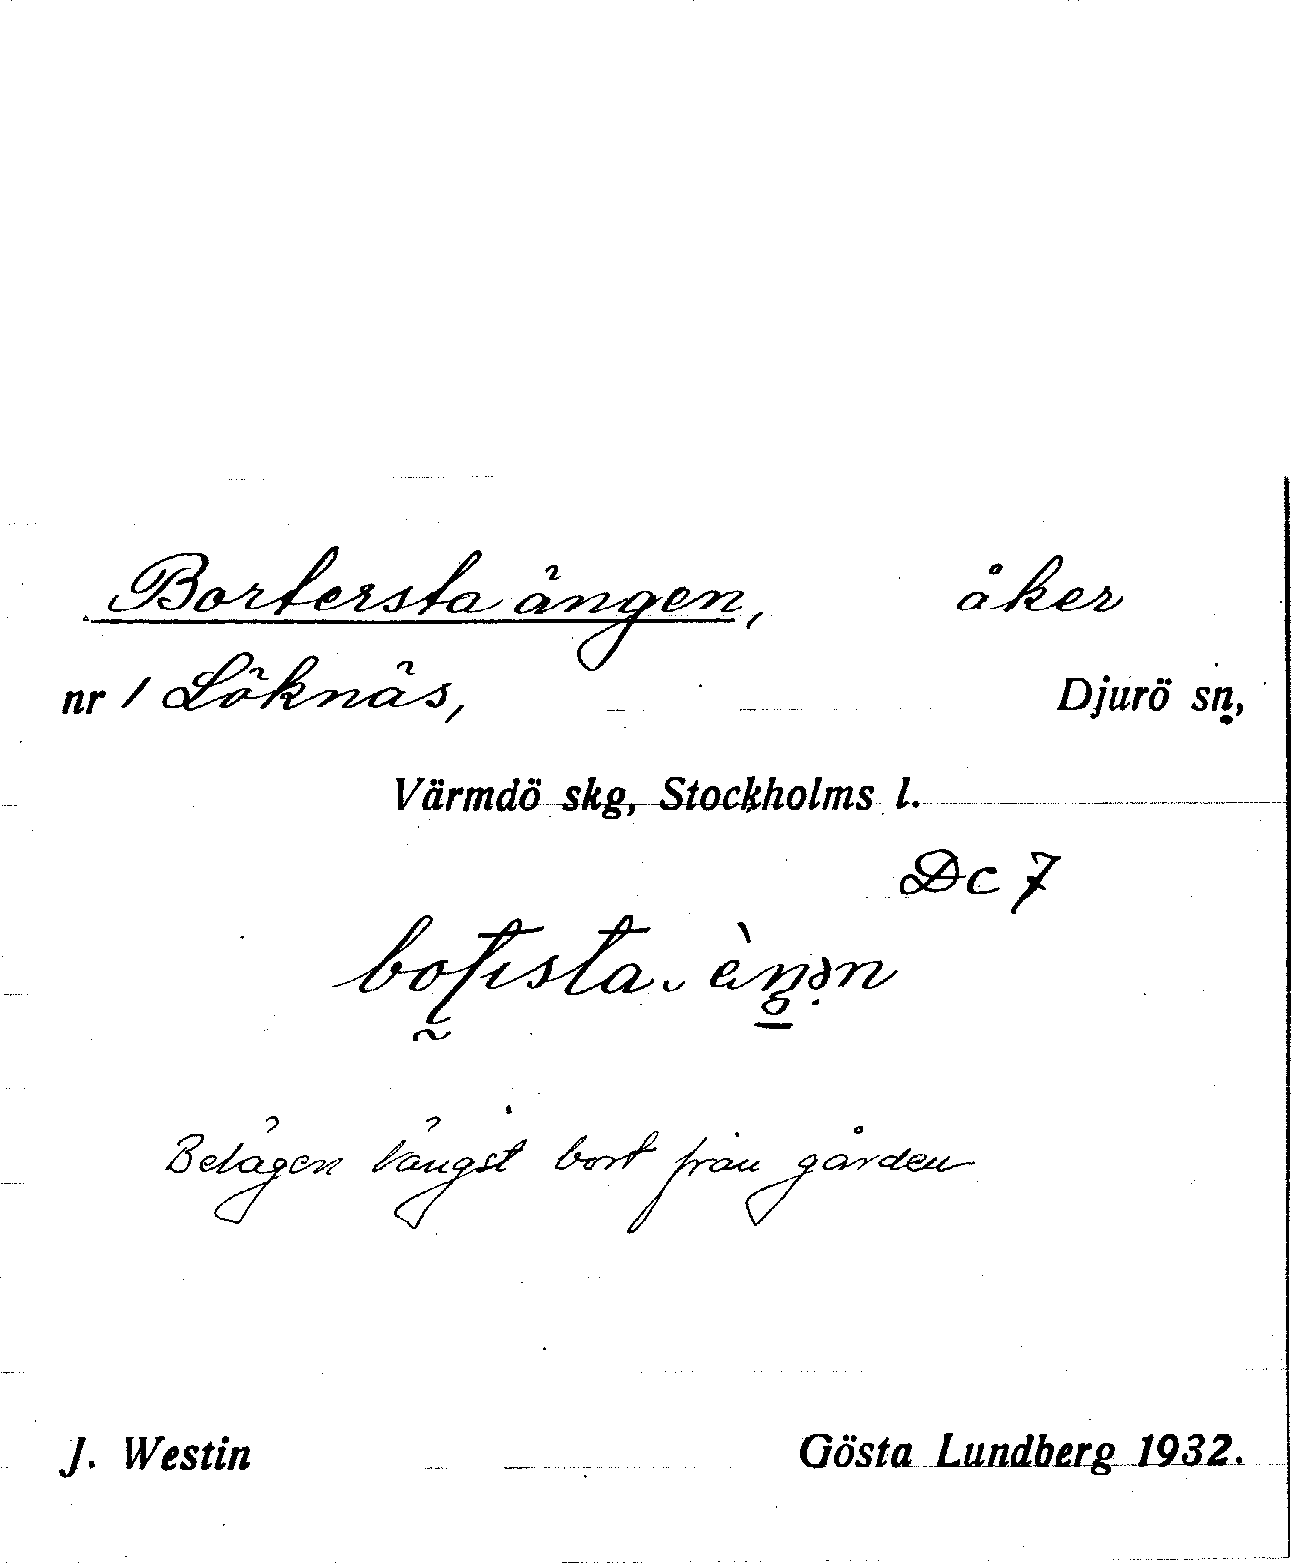 Bortersta ängen, åker
nr 1 Löknäs, Djurö sn,
Värmdö skg, Stockholms l.
Dc 7
Belägen längst bort från gården
J. Westin Gösta Lundberg 1932.